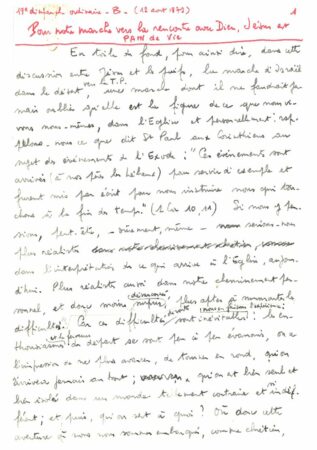 19e dimanche ordinaire - B - (12 août 1979) 1
Pour notre marche vers la rencontre avec Dieu, Jésus est
PAIN de Vie
En toile de fond, pour ainsi dire, dans cette
discussion entre Jésus et les juifs, la marche d'Israël
dans le désert, vers la T.P. une marche dont il ne faudrait ja-
mais oublier qu'elle est la figure de ce que nous vi-
vons nous-mêmes, dans l'Eglise et personnellement : rap-
pelons-nous ce que dit St Paul aux Corinthiens au
sujet des événements de l'Exode : "Ces événements sont
arrivés (à nos pères les Hébreux) pour servir d'exemple et
furent mis par écrit pour nous instruire nous qui tou-
chons à la fin des temps." (1 Cor 10, 11) Si nous y pen-
sions, peut-être, - sûrement, même - nous serions-nous
plus réalistes
dans l'interprétation de ce qui arrive à l'Eglise, aujour-
d'hui. Plus réalistes aussi dans notre cheminement per-
sonnel, et donc moins surpris, plus aptes à surmonter les
difficultés. Car ces difficultés sont inévitables : les en-
thousiasmes du départ se sont peu à peu évanouis, on a
l'impression de ne plus avancer, de tourner en rond, qu'on
n'arrivera jamais au bout ; qu'on est bien seul et
bien isolé dans un monde tellement contraire et si indif-
férent ; et puis, qu'on sert à quoi ? Où donc cette
aventure où nous nous sommes embarqués, comme chrétiens,